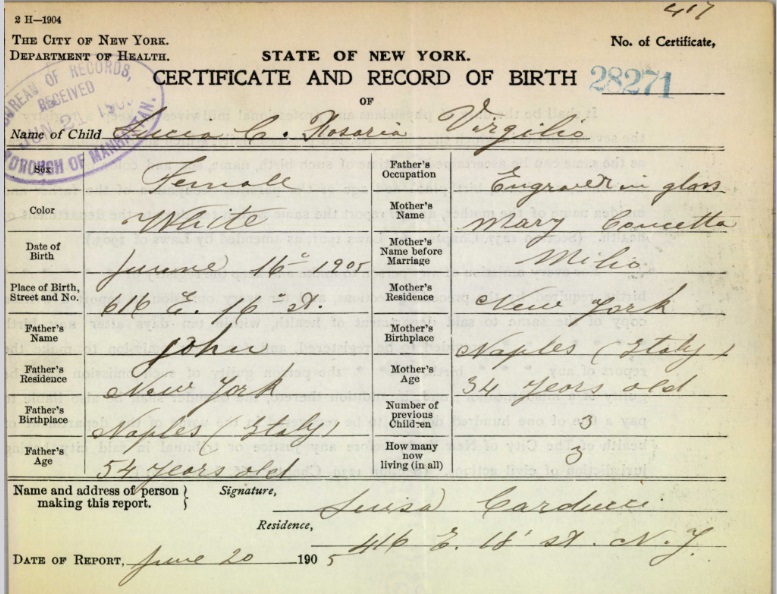 417
2 H—1904
THE CITY OF NEW YORK.
DEPARTMENT OF HEALTH.
No. of Certificate,
STATE OF NEW YORK.
CERTIFICATE AND RECORD OF BIRTH 28271
OF
BUREAU OF RECORDS,
RECEIVED
JUN 21
BOROUGH OF MANHATTAN.
Name of Child Lucia C. Rosaria Virgilio
Sex Female Father's Occupation Engraver in glass
Color White Mother's Name Mary Concetta
Date of Birth Junne 16° 1905 Mother's Name before Marriage Milio
Place of Birth, Street and No. 616 E. 16° St. Mother's Residence New York
Father's Name John Mother's Birthplace Naples (Italy)
Father's Residence New York Mother's Age 34 Years old
Father's Birthplace Naples Italy Number of previous Children 3
Father's Age 54 Years old How many now living (in all) 3
Name and address of person making this report. Signature, Luisa Carducci
Residence, 416 E. 18' st. N. Y.
DATE OF REPORT, June 20 1905